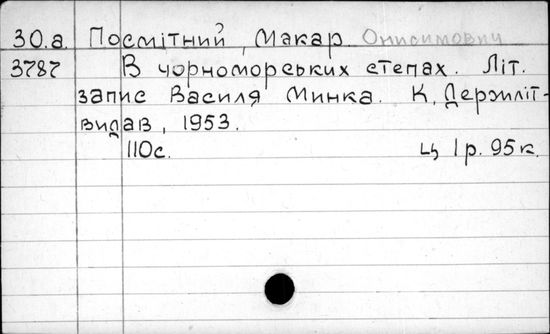 30.а. Посмітний, Макар Онисимович
3787 В чорноморських степах. Літ.
запис Василя Минка. К, Держліт-
видав, 1953.
110с. ц 1р. 95к.